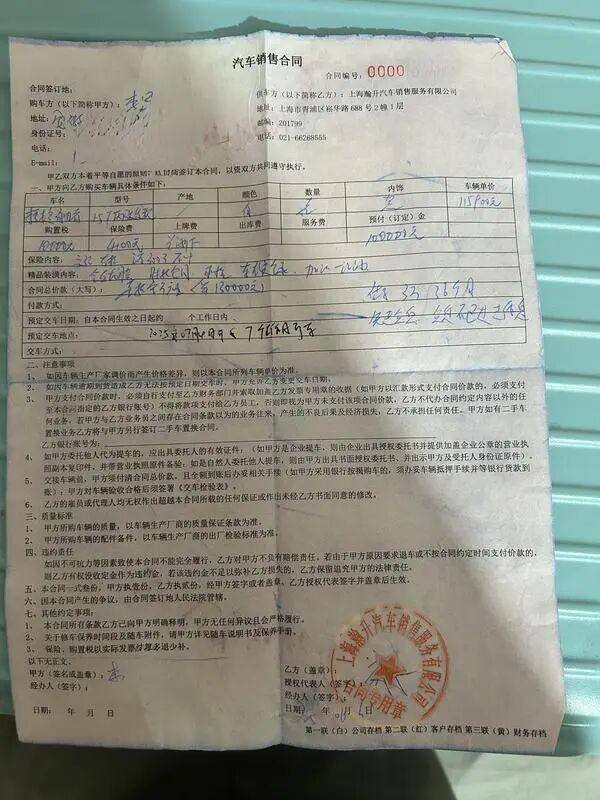 汽车销售合同
合同编号：0000
合同签订地：
供车方（以下简称乙方）：上海瀚升汽车销售服务有限公司
购车方（以下简称甲方）：李
地址：上海市青浦区崧华路688号2幢1层
地址：安徽
邮编：201799
身份证号：
电话：021-66268555
电话：
E-mail：
甲乙双方本着平等自愿的原则，经协商签订本合同，以资双方共同遵守执行。
一、甲方向乙方购买车辆具体条件如下：
车名 型号 产地 颜色 数量 内饰 车辆单价
115900元
购置税 保险费 上牌费 出库费 服务费 预付（订定）金
10000元 4100元 10000元
保险内容：
精品装潢内容：
合同总价款（大写）： 130000元
36个月
付款方式：
预定交车日期：自本合同生效之日起约 个工作日内
预定交车地点：
交车方式：
二、注意事项
1、如因车辆生产厂家调价而产生价格差异，则以本合同所列车辆单价为准。
2、如因车辆逾期到货造成乙方无法按预定日期交车时，甲方允许乙方变更交车日期。
3、甲方支付合同价款时，必须自行支付至乙方财务部门并索取加盖乙方发票专用章的收据（如甲方以汇款形式支付合同价款的，必须支付
至本合同指定的乙方银行账号）不得将款项支付给乙方员工，否则即视为甲方未付该项合同价款，乙方不代办合同约定内容以外的任
何业务，若甲方与乙方业务员之间存在合同条款以为的业务往来，产生的不良后果及经济损失，乙方不承担任何责任。甲方如有二手车
置换业务乙方将与甲方另行签订二手车置换合同。
乙方银行账号为：
4、如甲方委托他人代为提车的，应出具委托人的有效证件，（如甲方是企业提车，则由企业出具授权委托书并提供加盖企业公章的营业执
照副本复印件，并带营业执照原件备验；如是自然人委托他人提车，则由甲方出具书面委托书，并出示甲方及受托人身份证原件）。
5、交接车辆前，甲方须付清合同总价款，且全额到账后办妥相关手续（如甲方采用银行按揭购车的，须办妥车辆抵押手续并等银行贷款到
账）；甲方对车辆验收合格后须签署《交车检验表》。
6、乙方的雇员或代理人均无权作出超越本合同所载的任何保证或作出未经乙方书面同意的修改。
三、质量标准
1、甲方所购车辆的质量，以车辆生产厂商的质量保证条款为准。
2、甲方所购车辆的配件准备，以车辆生产厂商的出厂检验标准为准。
四、违约责任
如因不可抗力等因素致使本合同不能完全履行，乙方对甲方不负有赔偿责任。若由于甲方原因要求退车或不按合同约定时间支付价款的，
则乙方有权没收定金作为违约金，若该违约金不足以弥补乙方损失的，乙方保留追究甲方的法律责任。
五、本合同一式叁份，甲方执壹份，乙方执贰份，经甲方签字或者盖章，乙方授权代表签字并盖章后生效。
六、因本合同产生的争议，由合同签订地人民法院管辖。
七、其他约定事项：
1、本合同所有条款乙方已向甲方明确释明，甲方无任何异议且会严格履行。
2、关于修车保养时间段及随车附件，请甲方详见随车说明书及保养手册。
3、保险，购置税以实际发票结算多退少补。
以下无正文。
甲方（签名或盖章）：李
乙方（盖章）：
经办人（签字）：
授权代表人（签字）：
经办人（签字）：
日期： 年 月 日
日期： 年 月 日
上海瀚升汽车销售服务有限公司
合同专用章
第一联（白）公司存档 第二联（红）客户存档 第三联（黄）财务存档